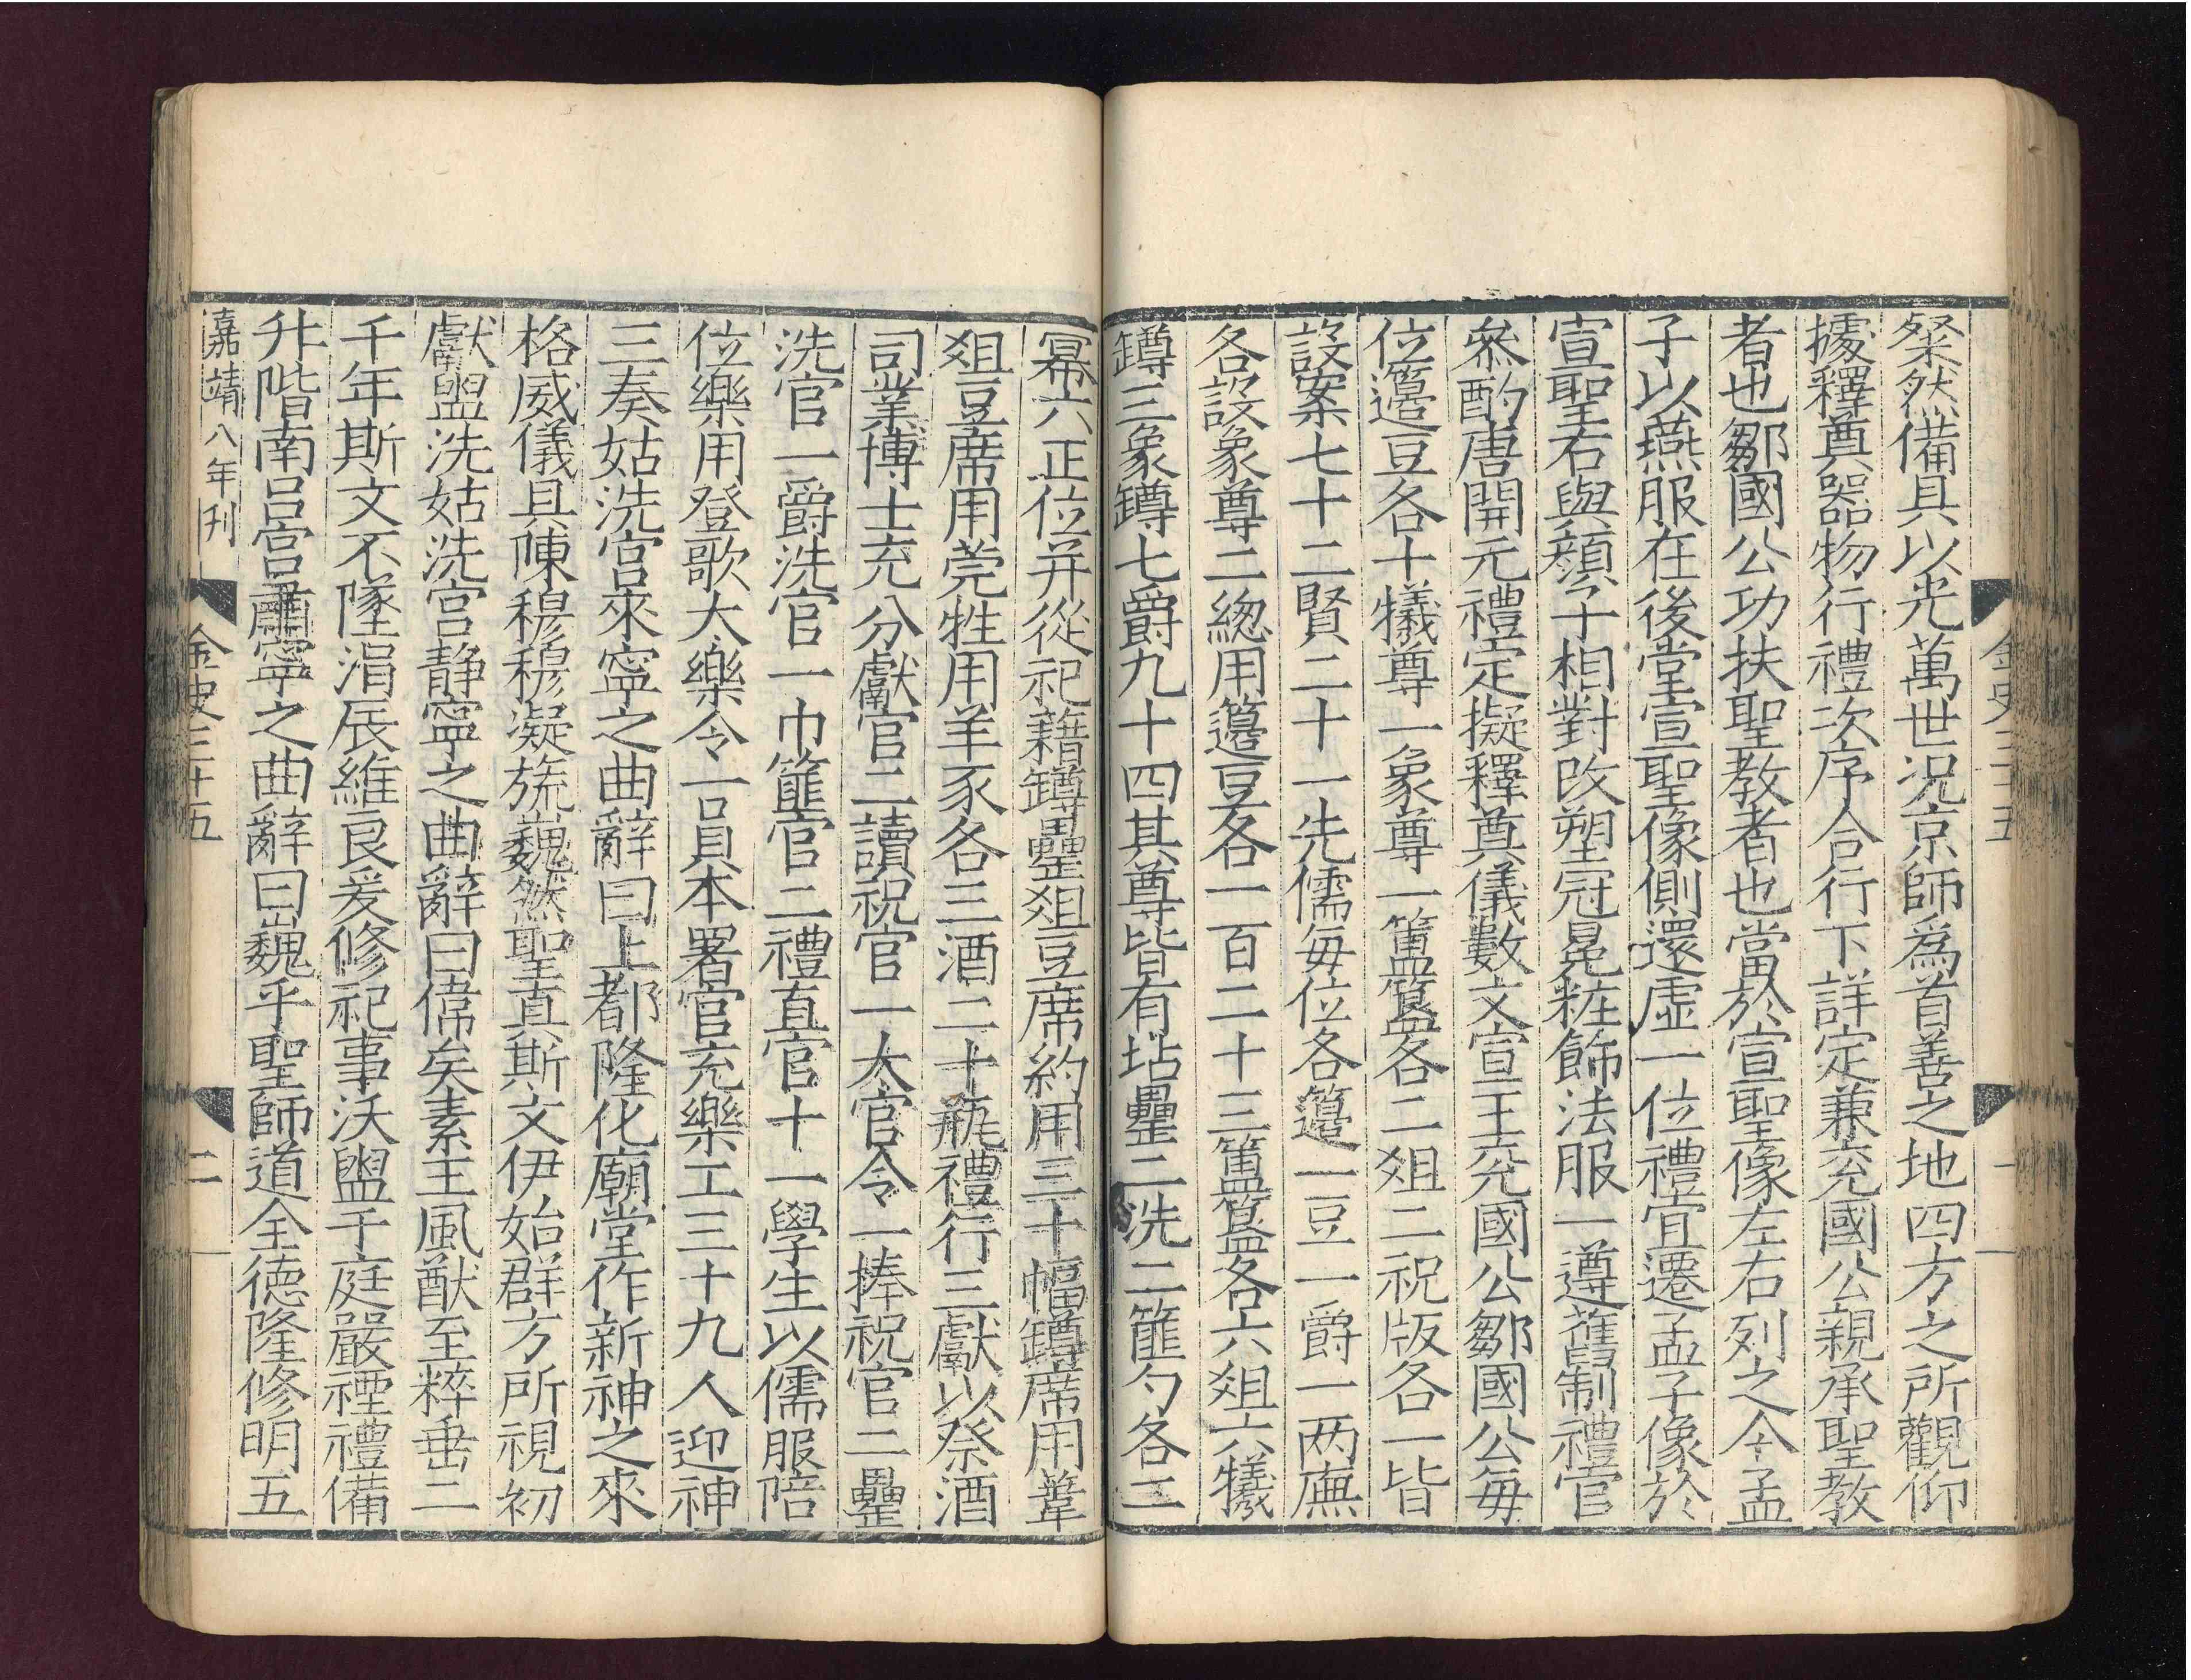 金史三十五
一
粲然備具以光萬世况京師爲首善之地四方之所觀仰
據釋奠器物行禮次序合行下詳定兼兖國公親承聖教
者也鄒國公功扶聖教者也當於宣聖像左右列之今孟
子以燕服在後堂宣聖像側還虛一位禮宜遷孟子像於
宣聖右與顏子相對改塑冠冕粧飾法服一遵舊制禮官
叅酌唐開元禮定擬釋奠儀數文宣王兖國公鄒國公每
位籩豆各十犧尊一象尊一簠簋各二爼二祝版各一皆
設案七十二賢二十一先儒每位各籩一豆一爵一两廡
各設象尊二緫用籩豆各一百二十三簠簋各六爼六犧
罇三象罇七爵九十四其尊皆有坫罍二洗二篚勺各二
冪六正位并從祀藉罇罍爼豆席約用三十幅罇席用葦
爼豆席用莞牲用羊豕各三酒二十瓶禮行三獻以祭酒
司業博士充分獻官二讀祝官一太官令一捧祝官二罍
洗官一爵洗官一巾篚官二禮直官十一學生以儒服陪
位樂用登歌大樂令一員本署官充樂工三十九人迎神
三奏姑洗宮來寧之曲辭曰上都隆化廟堂作新神之來
格威儀具陳穆穆凝旒巍然聖真斯文伊始群方所視初
獻盥洗姑洗宮静寧之曲辭曰偉矣素王風猷至粹垂二
千年斯文不墜涓辰維良爰修祀事沃盥于庭嚴禋禮備
升階南吕宮肅寧之曲辭曰巍乎聖師道全德隆修明五
嘉靖八年刊
金史三十五
二